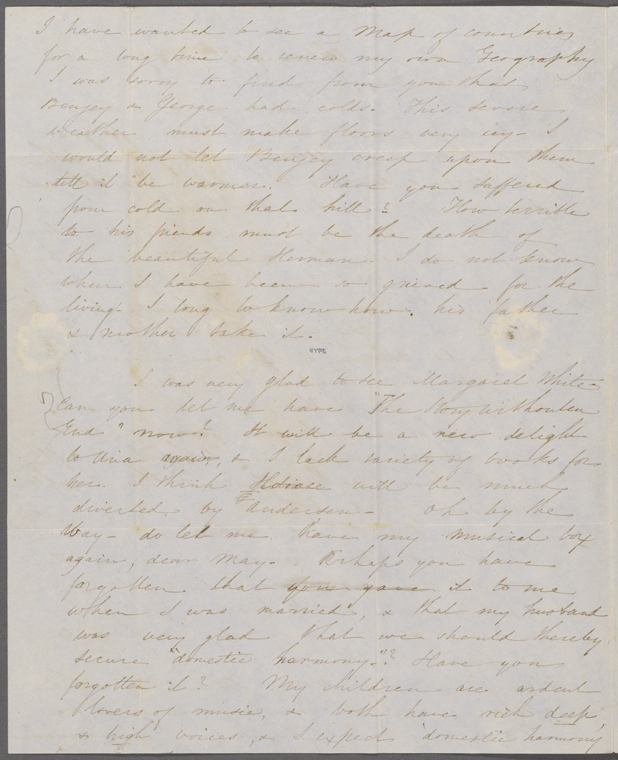 I have wanted to see a Map of countries
for a long time to renew my own Geography
I was sorry to find from you that
Benjey & George had colds. This severe
weather must make floors very icy - I
would not let Benjey creep upon them
till it be warmer. Have you suffered
from cold on that hill? How terrible
to his friends must be the death of
the beautiful Herman. I do not know
when I have been so grieved for the
living. I long to know how his father
& mother take it.
I was very glad to see Margaret White -
Can you let me have "The Story without an
End" now? It will be a new delight
to Una again, & I lack variety of books for
her. I think Horace will be much
diverted by Andersen - Oh by the
way - do let me have my musical box
again, dear Mary. Perhaps you have
forgotten that you gave it to me
when I was married, & that my husband
was very glad that we should thereby
secure "domestic harmony."? Have you
forgotten it? My children are ardent
lovers of music, & both have rich deep
& high voices, & I expect domestic harmony